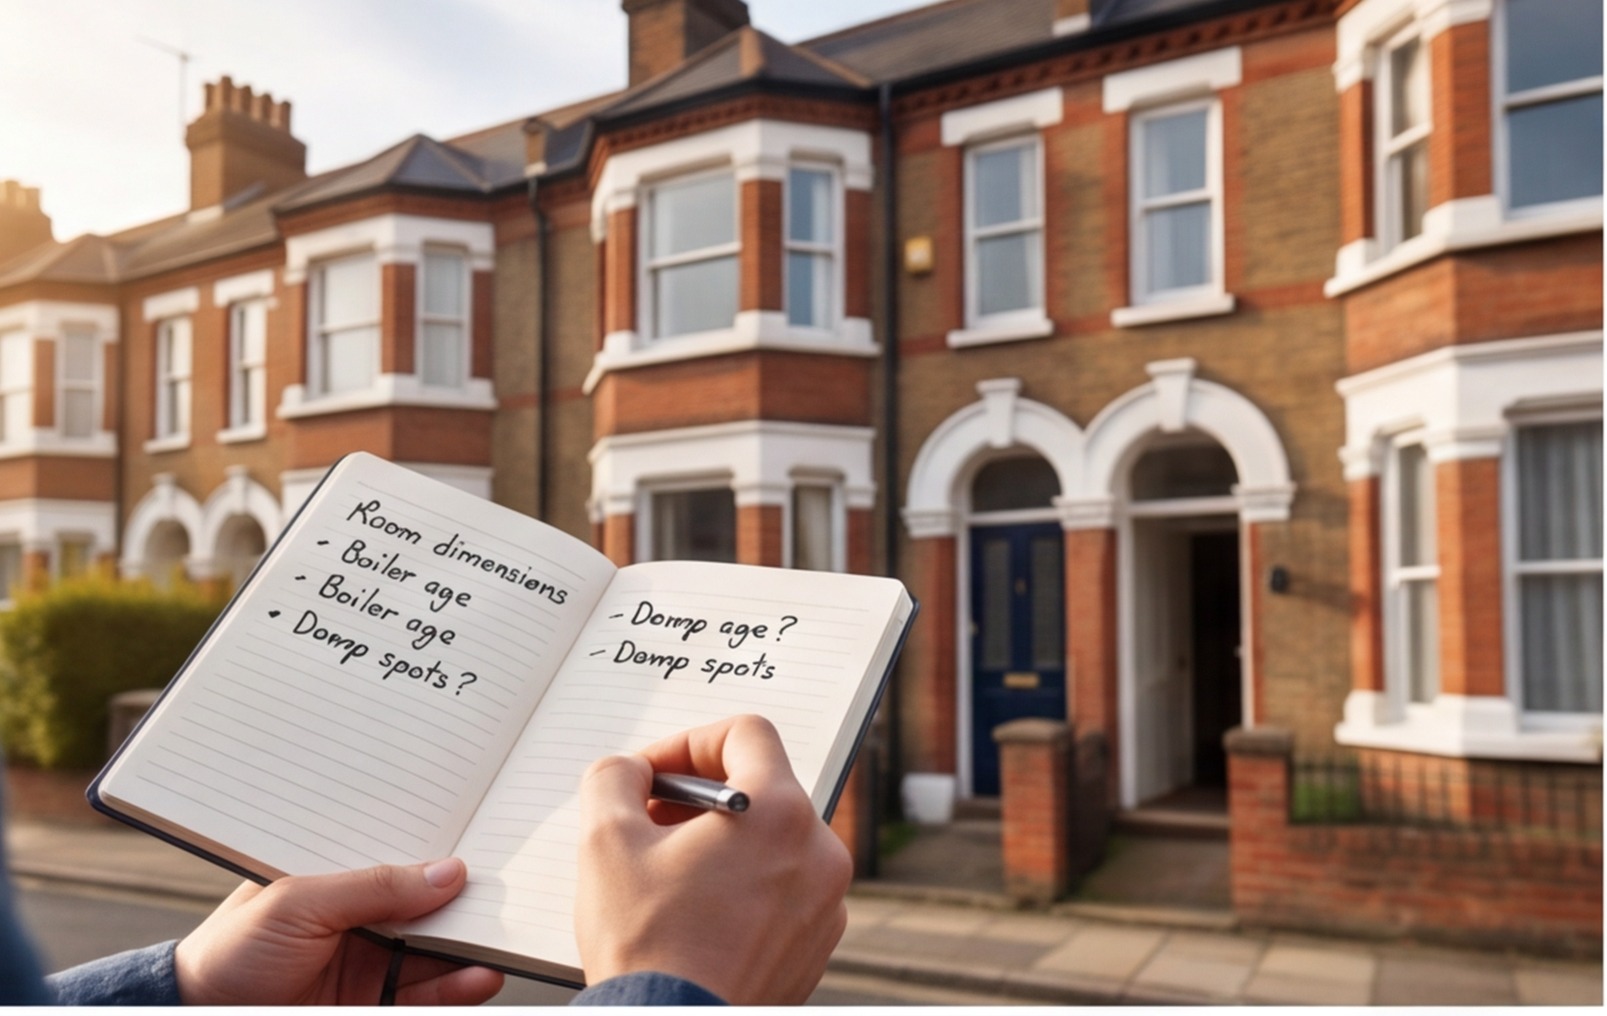 Room dimensions
- Boiler age
- Boiler age
• Domp spots?
- Domp age?
- Domp spots